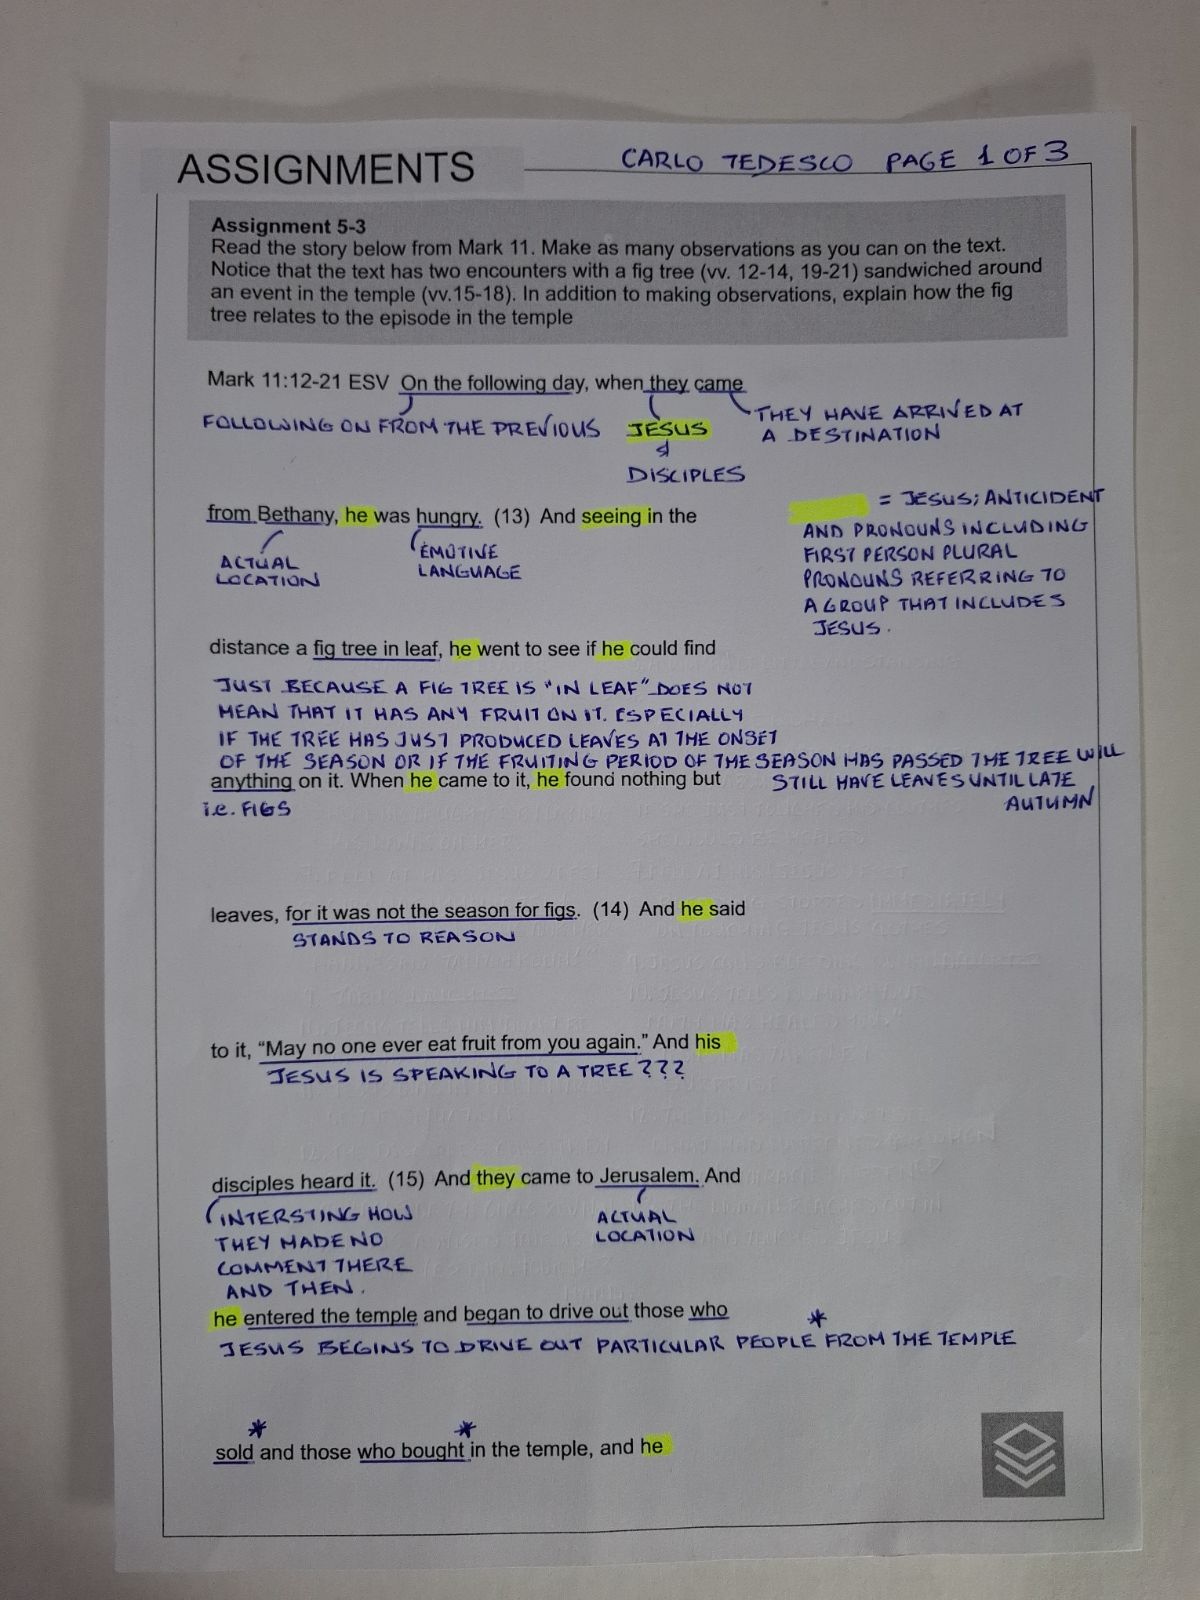 ASSIGNMENTS
CARLO TEDESCO PAGE 1 OF 3
Assignment 5-3
Read the story below from Mark 11. Make as many observations as you can on the text.
Notice that the text has two encounters with a fig tree (vv. 12-14, 19-21) sandwiched around
an event in the temple (vv.15-18). In addition to making observations, explain how the fig
tree relates to the episode in the temple
Mark 11:12-21 ESV On the following day, when they came
FOLLOWING ON FROM THE PREVIOUS
JESUS
&
DISCIPLES
THEY HAVE ARRIVED AT
A DESTINATION
from Bethany, he was hungry. (13) And seeing in the
ACTUAL
LOCATION
EMOTIVE
LANGUAGE
= JESUS; ANTICIDENT
AND PRONOUNS INCLUDING
FIRST PERSON PLURAL
PRONOUNS REFERRING TO
A GROUP THAT INCLUDES
JESUS.
distance a fig tree in leaf, he went to see if he could find
JUST BECAUSE A FIG TREE IS "IN LEAF" DOES NOT
MEAN THAT IT HAS ANY FRUIT ON IT. ESPECIALLY
IF THE TREE HAS JUST PRODUCED LEAVES AT THE ONSET
OF THE SEASON OR IF THE FRUITING PERIOD OF THE SEASON HAS PASSED THE TREE WILL
STILL HAVE LEAVES UNTIL LATE
AUTUMN
anything on it. When he came to it, he found nothing but
i.e. FIGS
leaves, for it was not the season for figs. (14) And he said
STANDS TO REASON
to it, “May no one ever eat fruit from you again.” And his
JESUS IS SPEAKING TO A TREE???
disciples heard it. (15) And they came to Jerusalem. And
INTERSTING HOW
THEY MADE NO
COMMENT THERE
AND THEN.
ACTUAL
LOCATION
he entered the temple and began to drive out those who
*
JESUS BEGINS TO DRIVE OUT PARTICULAR PEOPLE FROM THE TEMPLE
* *
sold and those who bought in the temple, and he